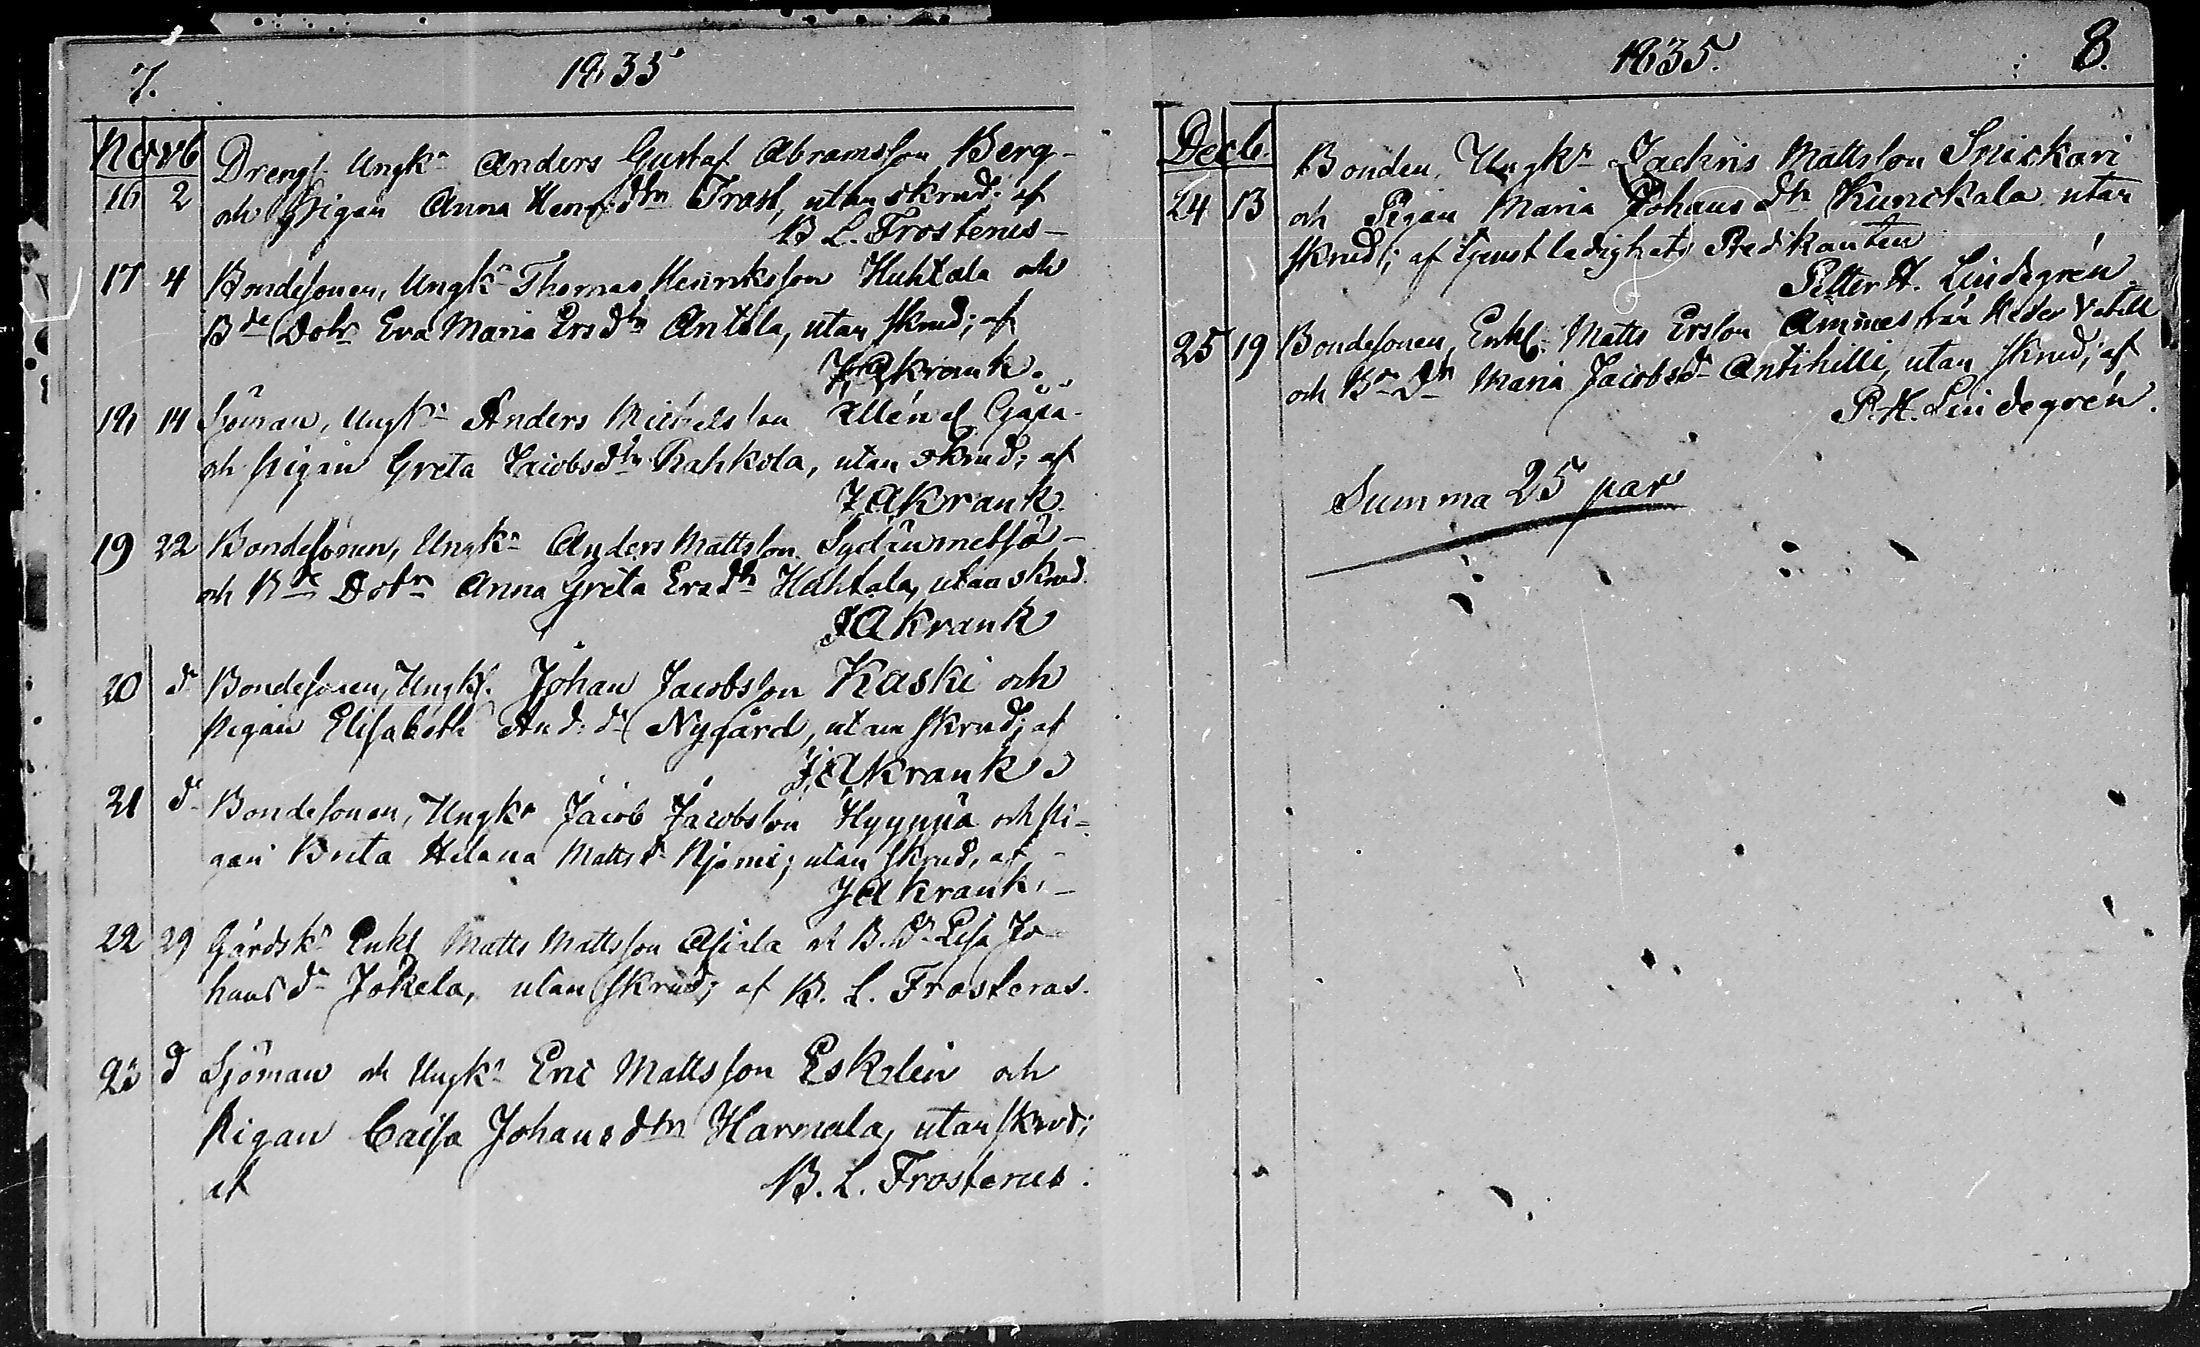 7.
1835
Novb
16 2 Drengl. Ungkn Anders Gustaf Abramsson Berg-
och Pigan Anna Henrsdtn Trast, utan skrud. af
B L. Frosterus-
17 4 Bondesonen, Ungkn Thomas Henriksson Huhtala och
Bde Dotr Eva Maria Ersdtn Antila, utan skrud; af
J A Krank.
18 14 Sjöman, Ungkn Anders Michelsson
och pigan Greta Jacobsdtn Rahkola, utan skrud; af
J A Krank.
19 22 Bondesonen, Ungkn Anders Mattsson Sydänmetsä-
och Bde Dotrn Anna Greta Ersdtn Huhtala, utan skrud.
J A Krank
20 d Bondesonen, Ungk. Johan Jacobsson Kaski och
pigan Elisabeth And. dr Nygård, utan skrud; af
J A Krank.
21 d Bondesonen, Ungkn Jacob Jacobsson Hyyppä och pi-
gan Brita Helena Mattsdr utan skrud, af -
J A Krank. -
22 29 Gårdskn Enkl Matts Mattsson och B. Dr Lisa Jo-
hansdr Jokela, utan skrud; af B. L. Frosterus.
23 d Sjöman och Ungkn Eric Mattsson Eskelin och
Pigan Caisa Johansdtn Harmala, utan skrud;
af B. L. Frosterus.
1835.
8.
Decb.
24 13 Bonden, Ungkr Zachris Mattsson Snickari
och Pigan Maria Johansdtr Kunckala utan
skrud; af tjenstledighets Predikanten
Petter H. Lindegrén
25 19 Bondesonen, Enkl. Matts Ersson från Neder Vetill
och Bn Dn Maria Jacobsdr Antihilli, utan skrud; af
P. H. Lindegrén.
Summa 25 par